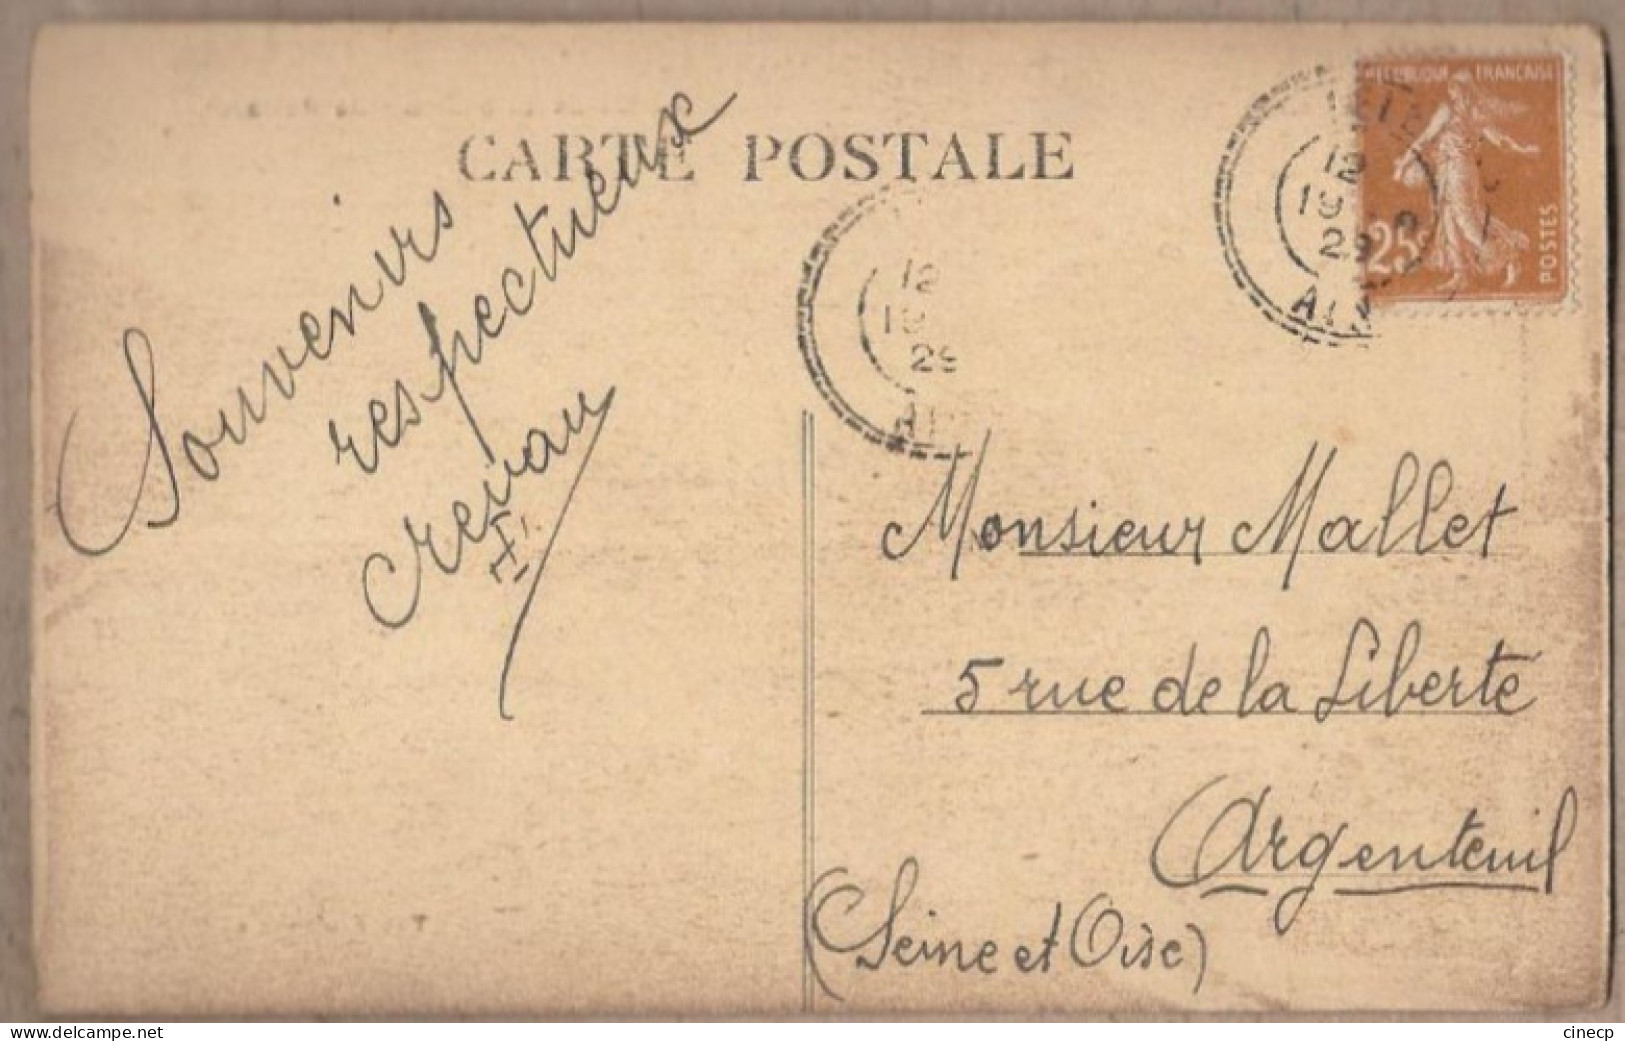 CARTE POSTALE
REPUBLIQUE FRANCAISE
25c
POSTES
12
19
29
12
19
29
Souvenirs
respectueux
Monsieur Mallet
5 rue de la Liberté
Argenteuil
(Seine et Oise)
www.delcampe.net
cinecp